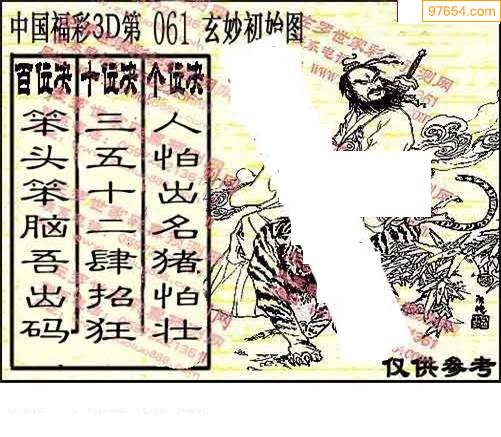 97654.com
中国福彩3D第 061 玄妙初始图
百位决 十位决 个位决
笨头笨脑吾出码
三五十二肆招狂
人怕出名猪怕壮
仅供参考